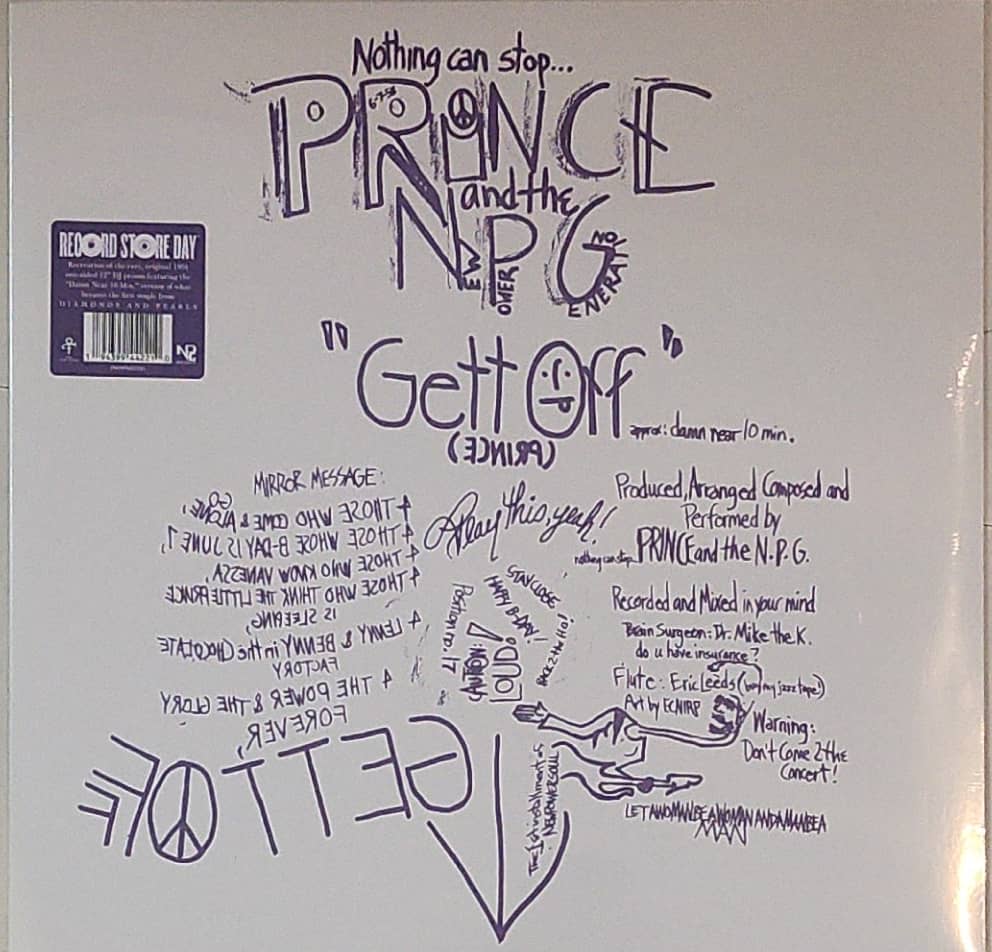 Nothing can stop...
PRINCE
6-7-58
and the
NEW POWER GENERATION
RECORD STORE DAY
Recreation of the rare, original 1991
one-sided 12" DJ promo featuring the
"Damn Near 10 Min." version of what
became the first single from
DIAMONDS AND PEARLS
"Gett Off"
approx: damn near 10 min.
(PRINCE)
MIRROR MESSAGE:
4 THOSE WHO COME & GO ALONE,
4 THOSE WHOSE B-DAY IS JUNE 7,
4 THOSE WHO KNOW VANESSA,
4 THOSE WHO THINK THE LITTLE PRINCE
IS SLEEPING,
4 LENNY & BENNY in the CHOCOLATE
FACTORY
4 THE POWER & THE GLORY
FOREVER,
GETT OFF
Play this, yeah!
STAY CLOSE
HAPPY B-DAY!
BACK 2 the Ho!
Position no. 17
CAUTION:
LOUD!
Produced, Arranged Composed and
Performed by
nothing can stop... PRINCE and the N.P.G.
Recorded and Mixed in your mind
Brain Surgeon: Dr. Mike the K.
do u have insurance?
Flute: Eric Leeds (buy my jazz tape!)
Art by ECNIRP
Warning:
Don't Come 2 the
Concert!
The 1st installment of
NEW POWER SOUL
LET A WOMAN BE A WOMAN AND A MAN BE A
MAN